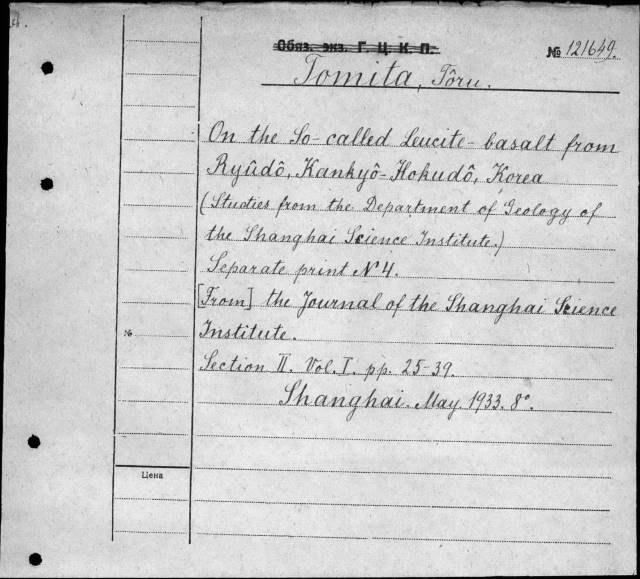 Обяз. экз. Г. Ц. К. П.
№ 121649.
Tomita, Tôru.
On the So-called Leucite-basalt from
Ryûdô, Kankyô-Hokudô, Korea
(Studies from the Department of Geology of
the Shanghai Science Institute.)
Separate print N 4.
[From] the Journal of the Shanghai Science
Institute.
№
Section II. Vol. I. pp. 25-39.
Shanghai. May. 1933. 8°.
Цена